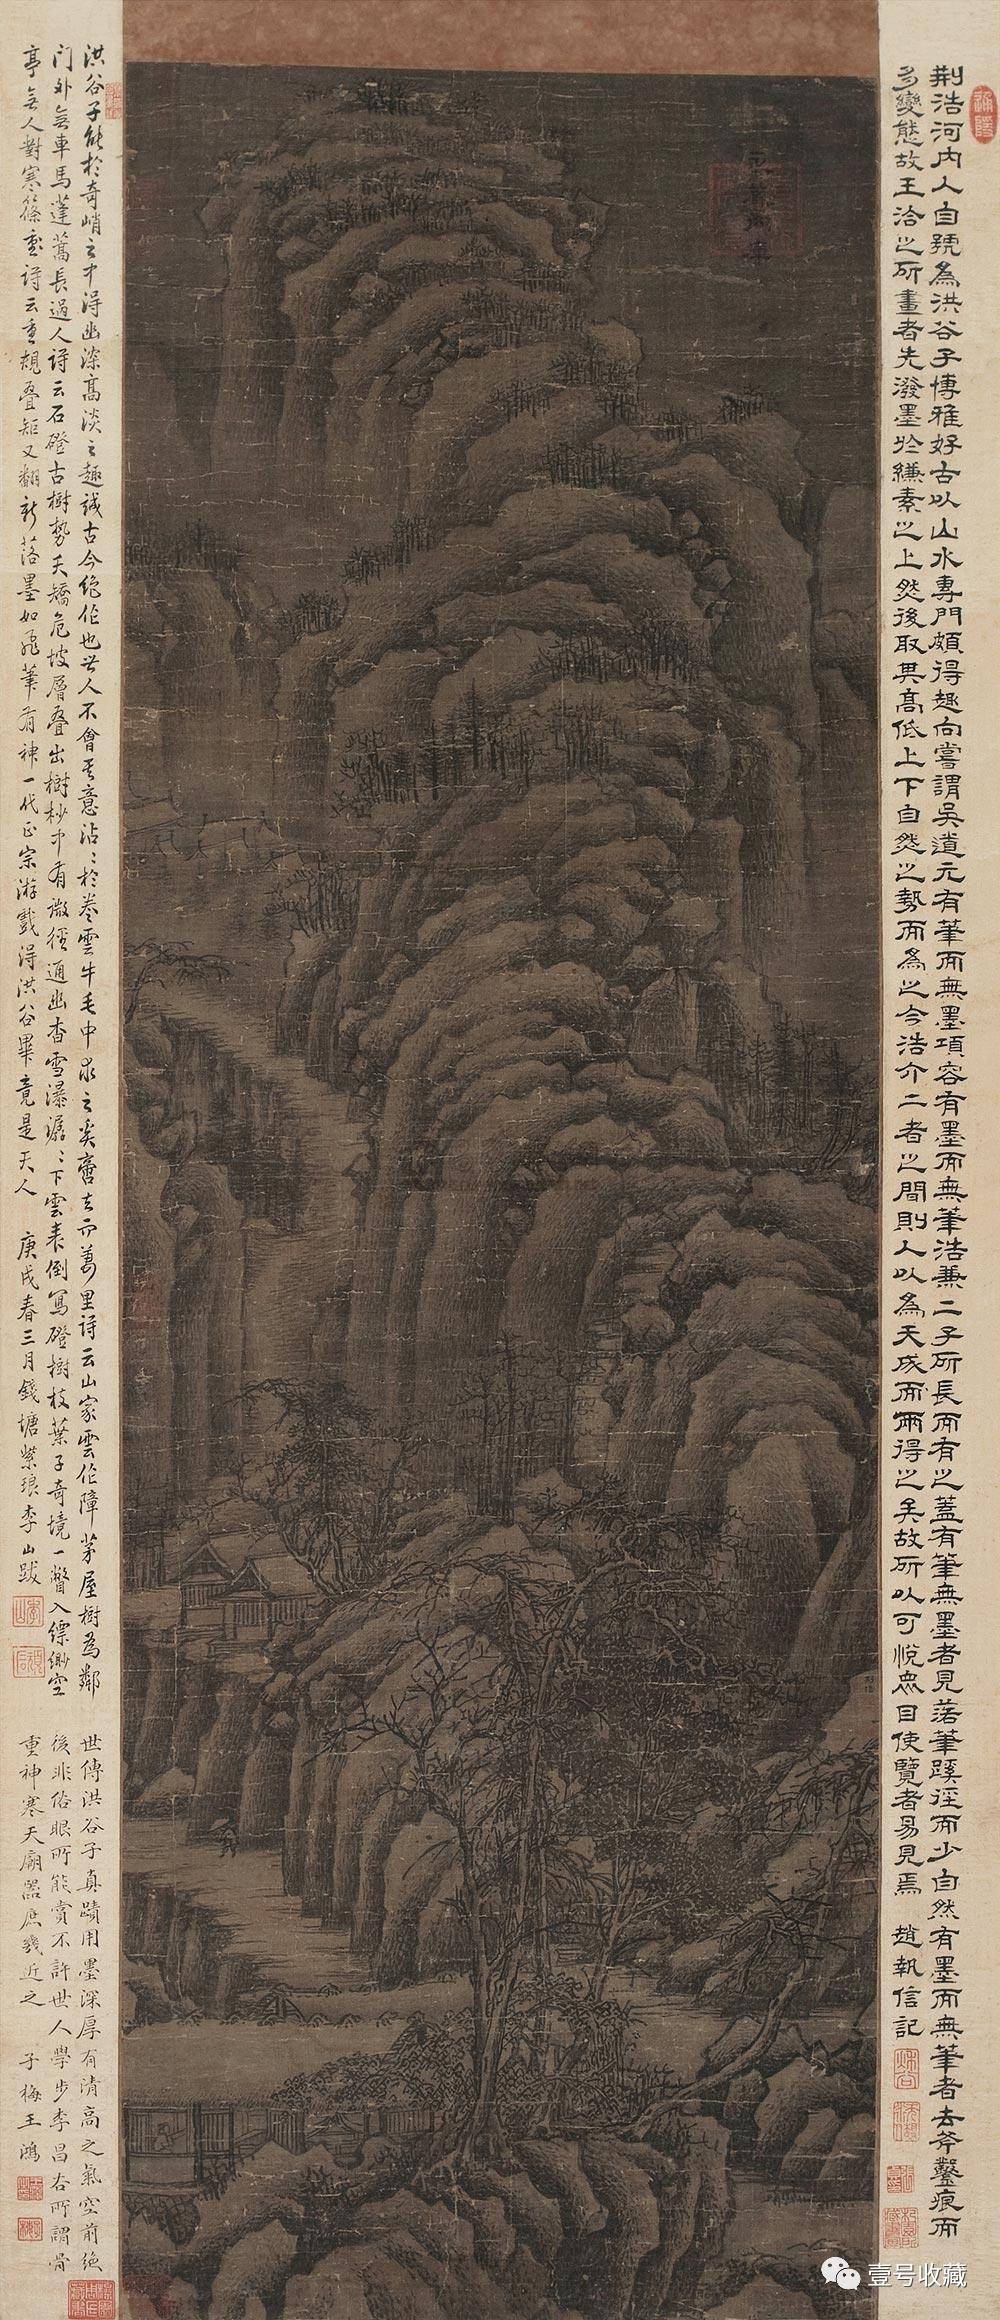 荆浩河内人自號為洪谷子博雅好古以山水專門頗得趣向嘗謂吳道元有筆而無墨項容有墨而無筆浩兼二子所長而有之蓋有筆無墨者見落筆蹊徑而少自然有墨而無筆者去斧鑿痕而
多變態故王洽之所畫者先潑墨於縑素之上然後取其高低上下自然之勢而為之今浩介二者之間則人以為天成而兩得之矣故所以可悅眾目使覽者易見焉 趙執信記
洪谷子能於奇峭之中得幽深高淡之趣誠古今絕作也世人不會其意沾沾於卷雲牛毛中求之奚啻去而萬里詩云山家雲作障茅屋樹為鄰
门外無車馬蓬蒿長過人詩云石磴古樹勢夭矯危坡層叠出樹杪中有微徑通幽杳雪瀑潺潺下雲表倒寫磴樹枝葉子奇境一瞥入縹緲空
亭無人對寒篠重詩云重規叠矩又翻新落墨如飛筆有神一代正宗游戲得洪谷畢竟是天人 庚戌春三月錢塘紫琅李山跋
世傳洪谷子真蹟用墨深厚有清高之氣空前絕
後非俗眼所能賞不許世人學步李昌谷所謂骨
重神寒天廟器庶幾近之 子梅王鴻
壹号收藏